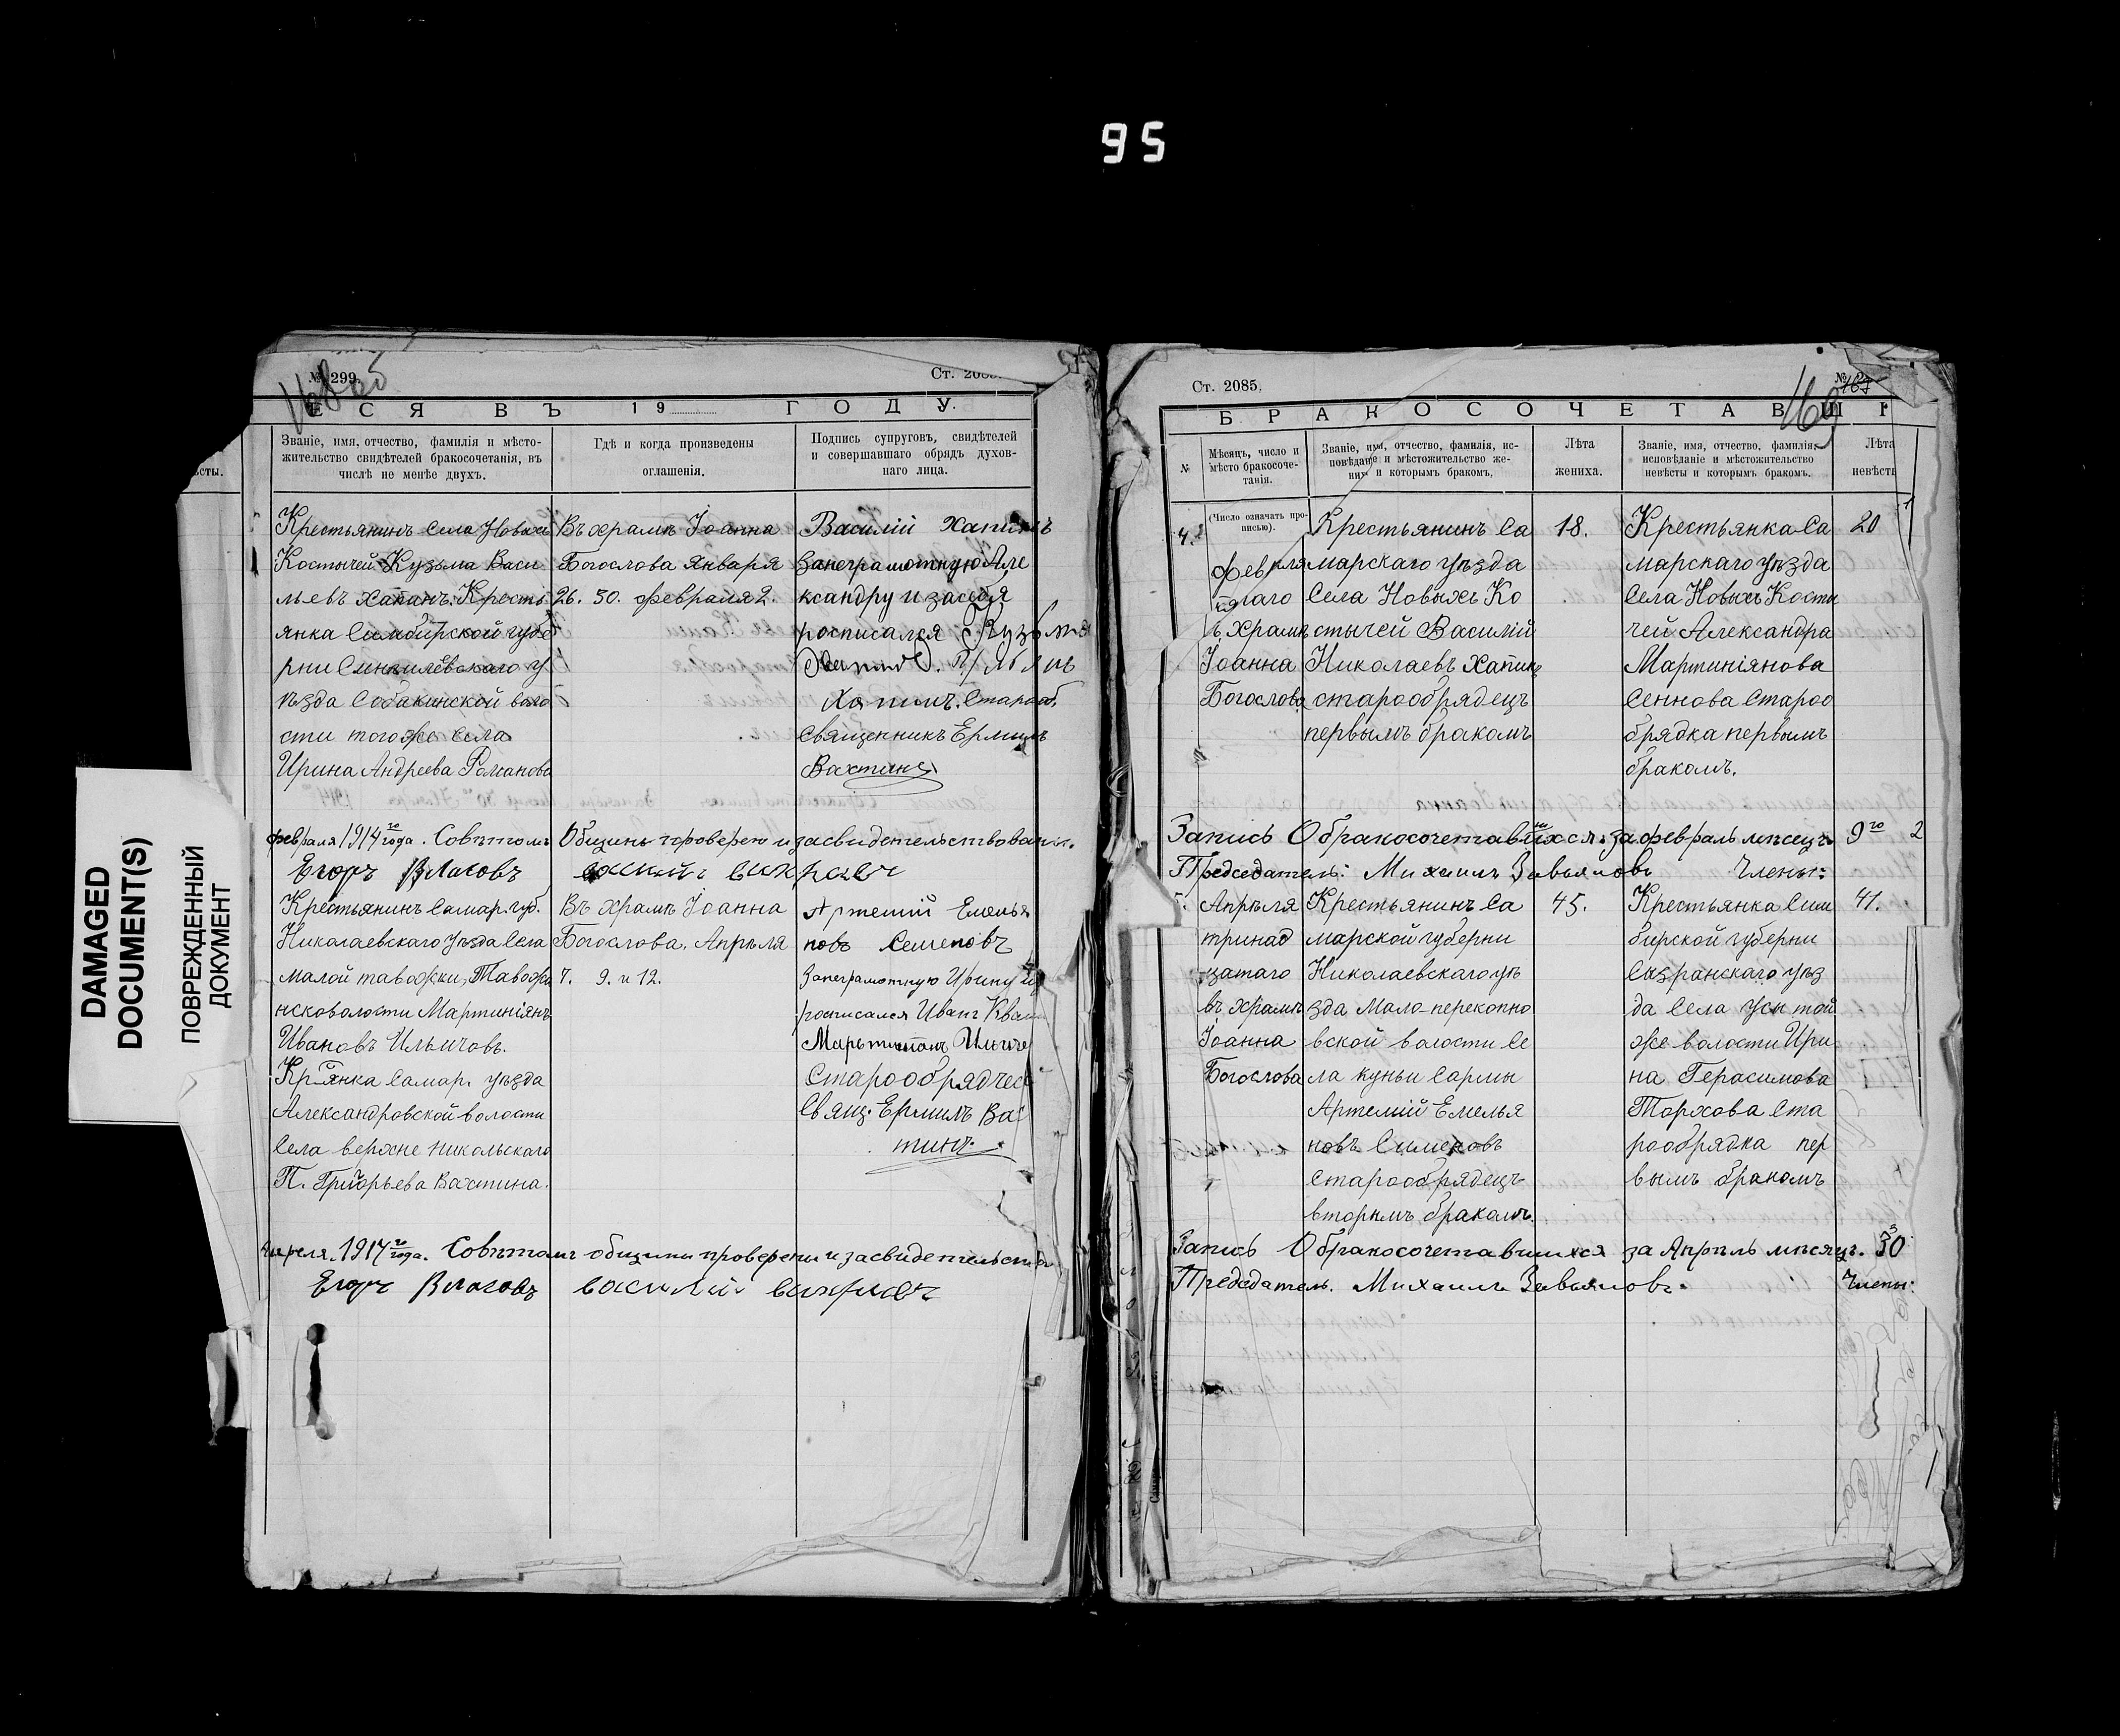 95
DAMAGED
DOCUMENT(S)
ПОВРЕЖДЕННЫЙ
ДОКУМЕНТ
168об
№ 299.
Ст. 2085.
ЕСЯ ВЪ 19 ГОДУ.
Званіе, имя, отчество, фамилія и мѣсто-
жительство свидѣтелей бракосочетанія, въ
числѣ не менѣе двухъ.
Крестьянинъ села Новыхъ
Костычей Кузьма Васи
льевъ Хапинъ. Кресть
янка Симбирской губе
рни Сингилѣевскаго у
ѣзда Собакинской воло
сти того же села
Ирина Андреева Романова
Гдѣ и когда произведены
оглашенія.
Въ храмѣ Іоанна
Богослова Января
26. 30. февраля 2.
Подпись супруговъ, свидѣтелей
и совершавшаго обрядъ духов-
наго лица.
Василій Хапинъ
Занеграмотную Але
ксандру и засебя
росписался Кузьма
Хапинъ. Старооб.
Священникъ Ермилъ
Вахтинъ
февраля 1914 го года. Совѣтомъ Общины проверено и засвидетельствовано.
Егоръ Власовъ
Крестьянинъ Самар. губ.
Николаевскаго уѣзда Села
малой таволжки, Таволжа
нсковолости Мартиніянъ
Ивановъ Ильичовъ.
Кр-янка Самар. уѣзда
Александровской волости
Села верхне Никольскаго
П. Григорьева Вахтина.
Въ храмѣ Іоанна
Богослова, Апрѣля
7. 9. и 12.
Артемий Емелья
новъ Семеновъ
Занеграмотную Ирину
росписался Иванъ
Старообрядчес
Свящ. Ермилъ Вах
тинъ.
Апреля. 1914 го года. Совѣтомъ общины проверены и засвидетельство
Егоръ Власовъ
Ст. 2085.
169
БРАКОСОЧЕТАВШІ
№
Мѣсяцъ, число и
мѣсто бракосоче-
танія.
Званіе, имя, отчество, фамилія, ис-
повѣданіе и мѣстожительство же-
ниха и которымъ бракомъ,
Лѣта
жениха.
Званіе, имя, отчество, фамилія,
исповѣданіе и мѣстожительство
невѣсты и которымъ бракомъ.
Лѣта
невѣсты
4.
(Число означать про-
писью).
храмѣ
Іоанна
Богослова
Крестьянинъ Са
марскаго уѣзда
Села Новыхъ Ко
стычей Василій
Николаевъ Хапинъ
старообрядецъ
первымъ бракомъ
18.
Крестьянка Са
марскаго уѣзда
Села Новыхъ Косты
чей Александра
Мартиніянова
Сеннова Староо
брядка первымъ
бракомъ.
20
Запись О бракосочетавшихся за февраль мѣсецъ 9 го
Председатель: Михаилъ Завьяловъ Члены:
5.
Апрѣля
тринад
цатаго
въ храмѣ
Іоанна
Богослова
Крестьянинъ Са
марской губерни
Николаевскаго уѣ
зда Мало-перекопно
вской волости Се
ла куньи Сармы
Артемій Емелья
новъ Сименовъ
Старообрядецъ
вторымъ бракомъ.
45.
Крестьянка Сим
бирской губерни
Сызранскаго уѣз
да Села Усы той
же волости Ири
на Герасимова
Торхова Ста
рообрядка пер
вымъ бракомъ
41.
Запись О бракосочетавшихся за Апрѣль мѣсяцъ. 30
Председатель. Михаилъ Завьяловъ. Члены: